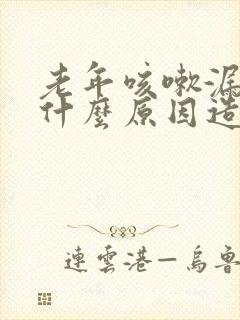 老年咳嗽漏
什麼原因造
連雲港—烏魯